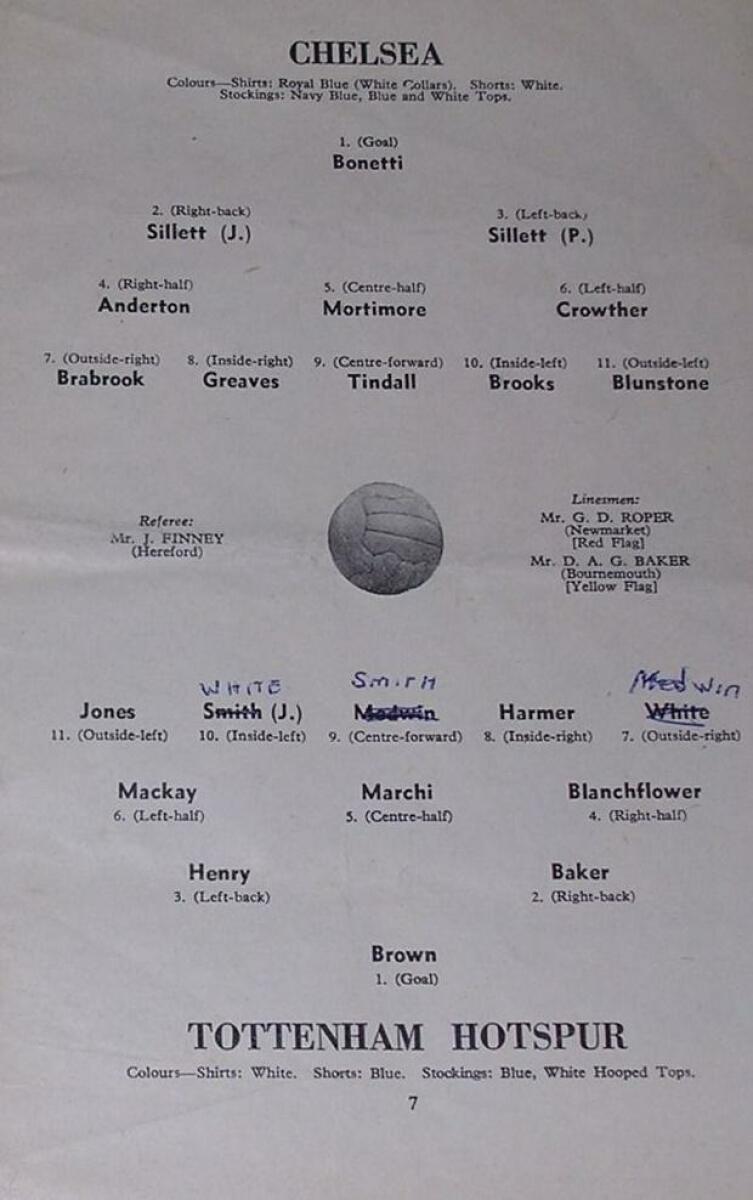 CHELSEA
Colours—Shirts: Royal Blue (White Collars). Shorts: White.
Stockings: Navy Blue, Blue and White Tops.
1. (Goal)
Bonetti
2. (Right-back) 3. (Left-back)
Sillett (J.) Sillett (P.)
4. (Right-half) 5. (Centre-half) 6. (Left-half)
Anderton Mortimore Crowther
7. (Outside-right) 8. (Inside-right) 9. (Centre-forward) 10. (Inside-left) 11. (Outside-left)
Brabrook Greaves Tindall Brooks Blunstone
Referee:
Mr. J. FINNEY
(Hereford)
Linesmen:
Mr. G. D. ROPER
(Newmarket)
[Red Flag]
Mr. D. A. G. BAKER
(Bournemouth)
[Yellow Flag]
WHITE Smith Medwin
Jones Smith (J.) Medwin Harmer White
11. (Outside-left) 10. (Inside-left) 9. (Centre-forward) 8. (Inside-right) 7. (Outside-right)
Mackay Marchi Blanchflower
6. (Left-half) 5. (Centre-half) 4. (Right-half)
Henry Baker
3. (Left-back) 2. (Right-back)
Brown
1. (Goal)
TOTTENHAM HOTSPUR
Colours—Shirts: White. Shorts: Blue. Stockings: Blue, White Hooped Tops.
7